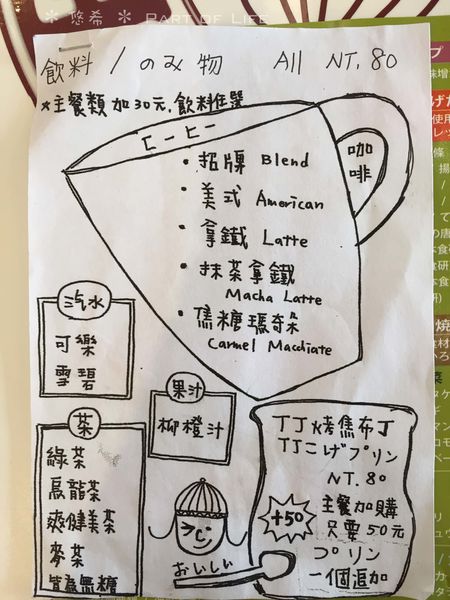 ✻ 悠希 ✻ Part of Life
飲料 / のみ物 All NT. 80
*主餐類加30元,飲料任選
ヒーヒー
咖啡
・招牌 Blend
・美式 American
・拿鐵 Latte
・抹茶拿鐵
Macha Latte
・焦糖瑪奇朵
Carmel Macchiate
汽水
可樂
雪碧
果汁
柳橙汁
茶
綠茶
烏龍茶
爽健美茶
麥茶
皆為無糖
おいしい
丁丁烤焦布丁
丁丁こげプリン
NT. 80
主餐加購
只要50元
+50
プリン
一個追加